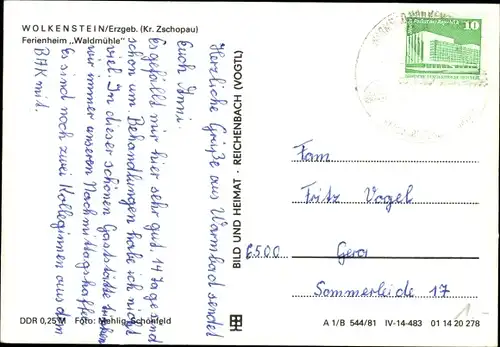 WOLKENSTEIN/Erzgeb. (Kr. Zschopau)
Ferienheim „Waldmühle"
Herzliche Grüße aus Warmbad sendet
Euch Inni.
Es gefällt mir hier sehr gut. 14 Tage sind
schon um. Behandlungen habe ich nicht
viel. In dieser schönen Gaststätte trinken
wir immer unseren Nachmittagskaffee.
Es sind noch zwei Kolleginnen aus dem
BAK mit.
BILD UND HEIMAT · REICHENBACH (VOGTL)
10
Fam
Fritz Vogel
6500 Gera
Sommerleide 17
DDR 0,25 M Foto: Mehlig, Schönfeld
A 1/B 544/81 IV-14-483 01 14 20 278
1